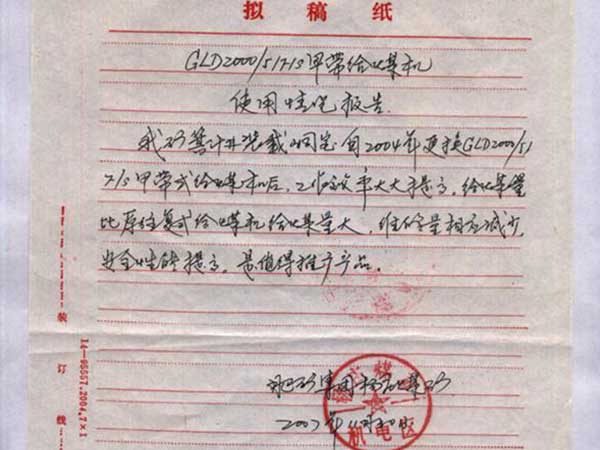 拟稿纸
GLD2000/5.17/S甲带给煤机
使用情况报告
我矿暗井装载硐室自2004年更换GLD2000/5.1
7/S甲带式给煤机后,工作效率大大提高,给煤量
比原往复式给煤机给煤量大,维修量相应减少,
安全性能提高,是值得推广产品。
集团
煤矿
2007年11月
机电区
装订线
14—95557.2004.7×1